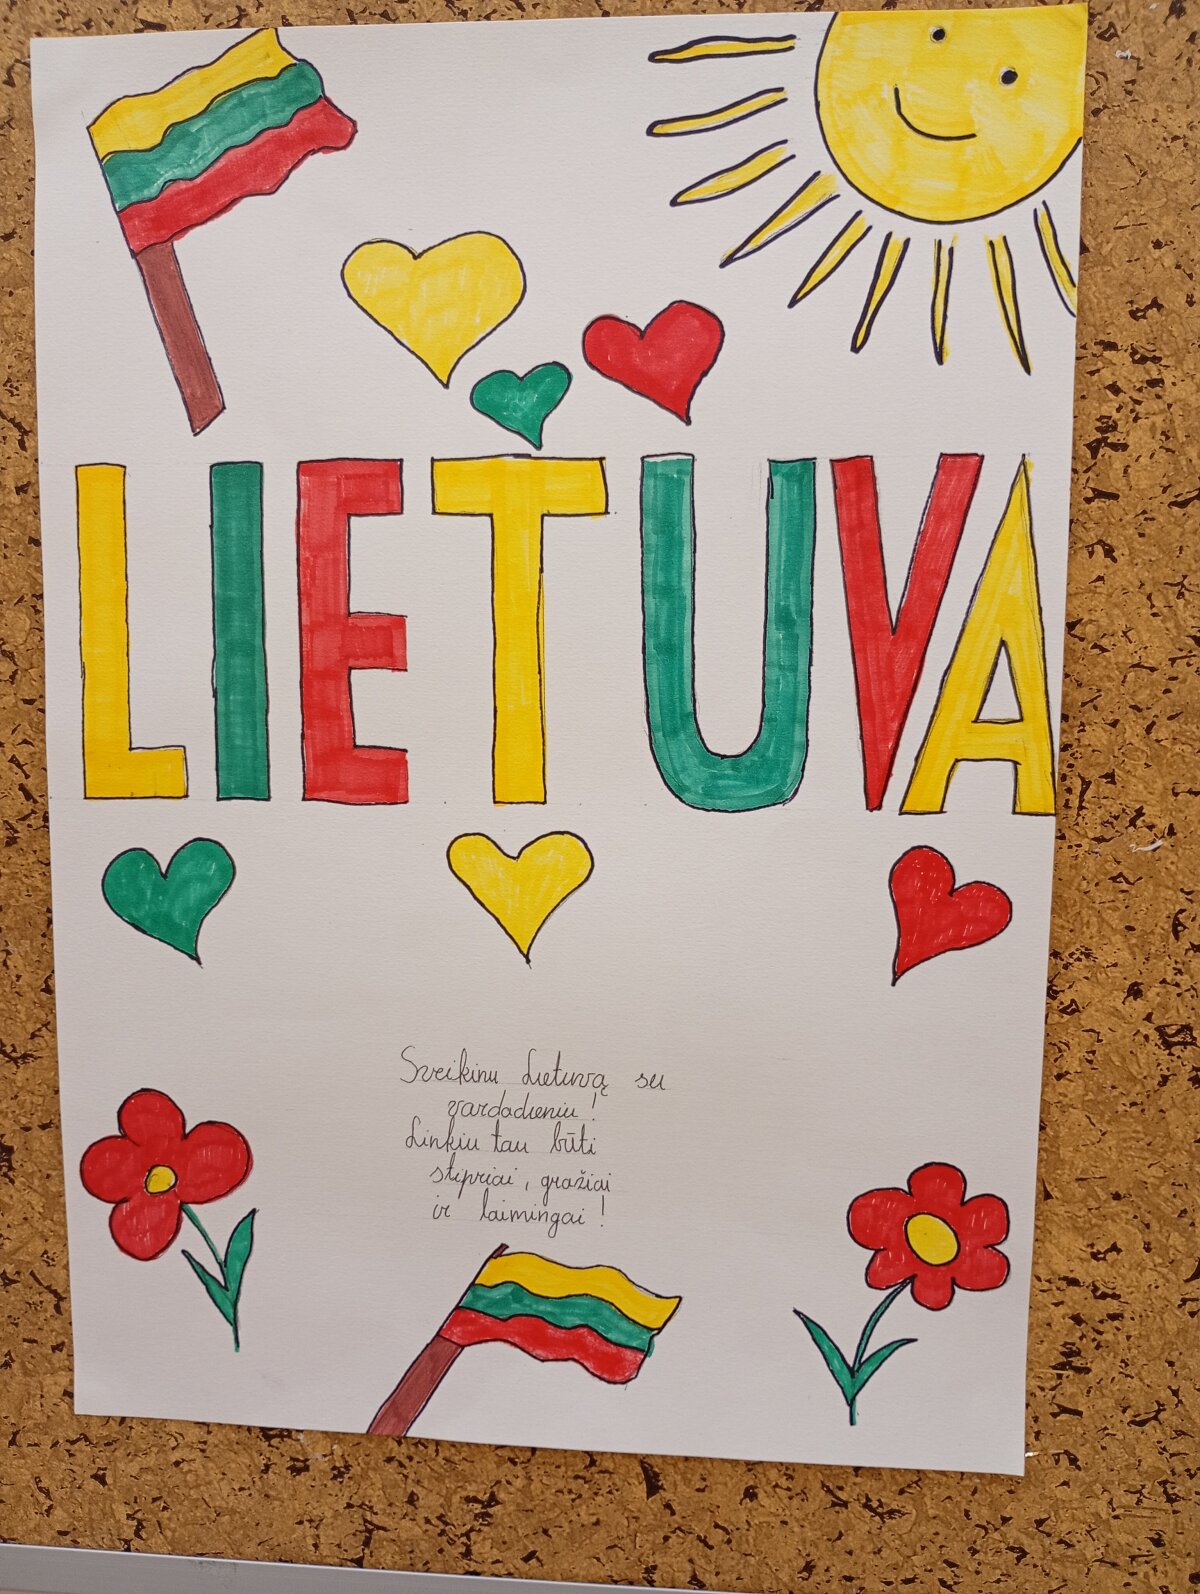 LIETUVA
Sveikinu Lietuvą su
vardadieniu!
Linkiu tau būti
stipriai, gražiai
ir laimingai!